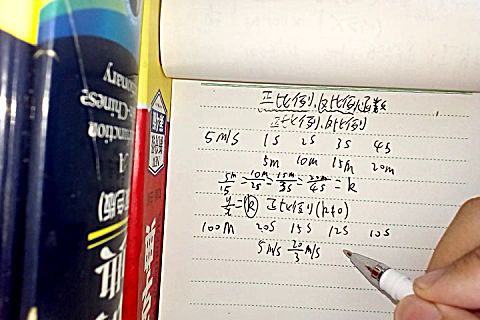 正比例、反比例函数
正比例、反比例
5m/s 1s 2s 3s 4s
5m 10m 15m 20m
5m/1s = 10m/2s = 15m/3s = 20m/4s = k
y/x = k 正比例(k≠0)
100m 20s 15s 12s 10s
5m/s 20/3 m/s
Chinese
Junction
A